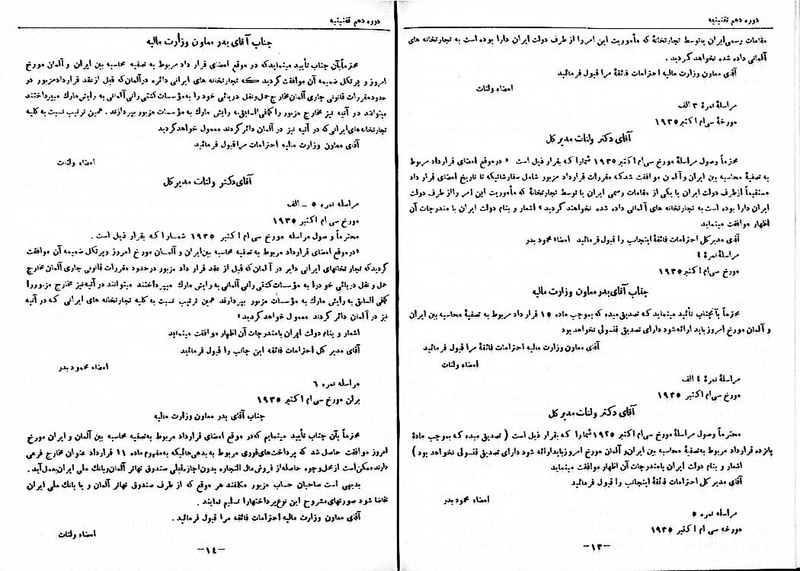 دوره دهم تقنینیه
مقامات رسمی ایران یا توسط تجارتخانهٔ که مأموریت این امر را از طرف دولت ایران دارا بوده است به تجارتخانه های
آلمانی داده شده نخواهد گردید.
آقای معاون وزارت مالیه احترامات فائقهٔ مرا قبول فرمائید
امضاء ولتات
مراسلهٔ نمرهٔ ۳ الف
مورخهٔ سی‌ام اکتبر ۱۹۳۵
آقای دکتر ولتات مدیر کل
محترماً وصول مراسلهٔ مورخ سی‌ام اکتبر ۱۹۳۵ شما را که بقرار ذیل است « در موقع امضای قرارداد مربوط
به تصفیهٔ محاسبه بین ایران و آلمان موافقت شد که مقررات قرارداد مزبور شامل سفارشاتیکه تا تاریخ امضای قرارداد
مستقیماً از طرف دولت ایران یا یکی از مقامات رسمی ایران یا توسط تجارتخانهٔ که مأموریت این امر را از طرف دولت
ایران دارا بوده است به تجارتخانه های آلمانی داده شده نخواهند گردید» اشعار و بنام دولت ایران با مندرجات آن
اظهار موافقت مینماید
آقای مدیر کل احترامات فائقهٔ اینجانب را قبول فرمائید امضاء محمود بدر
مراسلهٔ نمرهٔ ٤
مورخ سی‌ام اکتبر ۱۹۳۵
جناب آقای بدر معاون وزارت مالیه
محترماً بآنجناب تأئید مینماید که تصدیق مبده که بموجب مادهٔ ۱۵ قرارداد مربوط به تصفیهٔ محاسبه بین ایران
و آلمان مورخ امروز باید ارائه شود دارای تصدیق قنسولی نخواهد بود
آقای معاون وزارت مالیه احترامات فائقهٔ مرا قبول فرمائید
امضاء ولتات
مراسلهٔ نمرهٔ ٤ الف
مورخ سی‌ام اکتبر ۱۹۳۵
آقای دکتر ولتات مدیر کل
محترماً وصول مراسلهٔ مورخ سی‌ام اکتبر ۱۹۳۵ شما را که بقرار ذیل است ( تصدیق مبده که بموجب مادهٔ
پانزده قرارداد مربوط به تصفیهٔ محاسبه بین ایران و آلمان مورخ امروز باید ارائه شود دارای تصدیق قنسولی نخواهد بود )
اشعار و بنام دولت ایران با مندرجات آن اظهار موافقت مینماید
آقای مدیر کل احترامات فائقهٔ اینجانب را قبول فرمائید
امضاء محمود بدر
مراسلهٔ نمرهٔ ۵
مورخهٔ سی ام اکتبر ۱۹۳۵
–۱۳–
دوره دهم تقنینیه
جناب آقای بدر معاون وزارت مالیه
محترماً بآن جناب تأیید مینماید که در موقع امضای قرارداد مربوط به تصفیه محاسبه بین ایران و آلمان مورخ
امروز و پرتکل ضمیمه آن موافقت گردید که تجارتخانه های ایرانی دائره در آلمان که قبل از عقد قرارداد مزبور در
حدود مقررات قانونی جاری آلمان مخارج حمل و نقل دریائی خود را به مؤسسات کشتی رانی آلمانی به رایش مارک میپرداختند
میتوانند در آتیه نیز مخارج مزبور را کمافی‌السابق به رایش مارک به مؤسسات مزبور بپردازند . همین ترتیب نسبت به کلیه
تجارتخانه های ایرانی که در آتیه نیز در آلمان دائر گردند معمول خواهد گردید
آقای معاون وزارت مالیه احترامات مرا قبول فرمائید
امضاء ولتات
آقای دکتر ولتات مدیر کل
مراسله نمره ۵ – الف
مورخ سی‌ام اکتبر ۱۹۳۵
محترماً وصول مراسله مورخ سی‌ام اکتبر ۱۹۳۵ شما را که بقرار ذیل است .
«در موقع امضای قرارداد مربوط به تصفیه محاسبه بین ایران و آلمان مورخ امروز و پرتکل ضمیمه آن موافقت
گردید که تجارتخانهای ایرانی دایر در آلمان که قبل از عقد قرار داد مزبور در حدود مقررات قانونی جاری آلمان مخارج
حمل و نقل دریائی خود را به مؤسسات کشتی رانی آلمانی به رایش مارک میپرداختند میتوانند در آتیه نیز مخارج مزبور را
کمافی السابق به رایش مارک به مؤسسات مزبور بپردازند همین ترتیب نسبت به کلیه تجارتخانه های ایرانی که در آتیه
نیز در آلمان دائر گردند معمول خواهد گردید»
اشعار و بنام دولت ایران با مندرجات آن اظهار موافقت مینماید
آقای مدیر کل احترامات فائقه این جانب را قبول فرمائید
امضاء محمود بدر
مراسله نمره ۶
برلن مورخ سی‌ام اکتبر ۱۹۳۵
جناب آقای بدر معاون وزارت مالیه
محترماً بآن جناب تأیید مینمایم که در موقع امضای قرارداد مربوط به تصفیه محاسبه بین آلمان و ایران مورخ
امروز موافقت حاصل شد که پرداخت‌های فوری مربوط به بدهی‌هائیکه به مفهوم ماده ۱۱ قرارداد عنوان مخارج فرعی
دارند ممکن است از محل وجوه حاصله از فروش مال‌التجاره بدون اجازه قبلی صندوق تهاتر آلمان و بانک ملی ایران بعمل آید.
بدیهی است صاحبان حساب مزبور مکلفند هر موقع که از طرف صندوق تهاتر آلمان و یا بانک ملی ایران
تقاضا شود صورتهای مشروح این نوع پرداختها را تسلیم نمایند .
آقای معاون وزارت مالیه احترامات فائقه مرا قبول فرمائید .
امضاء ولتات
–۱٤–